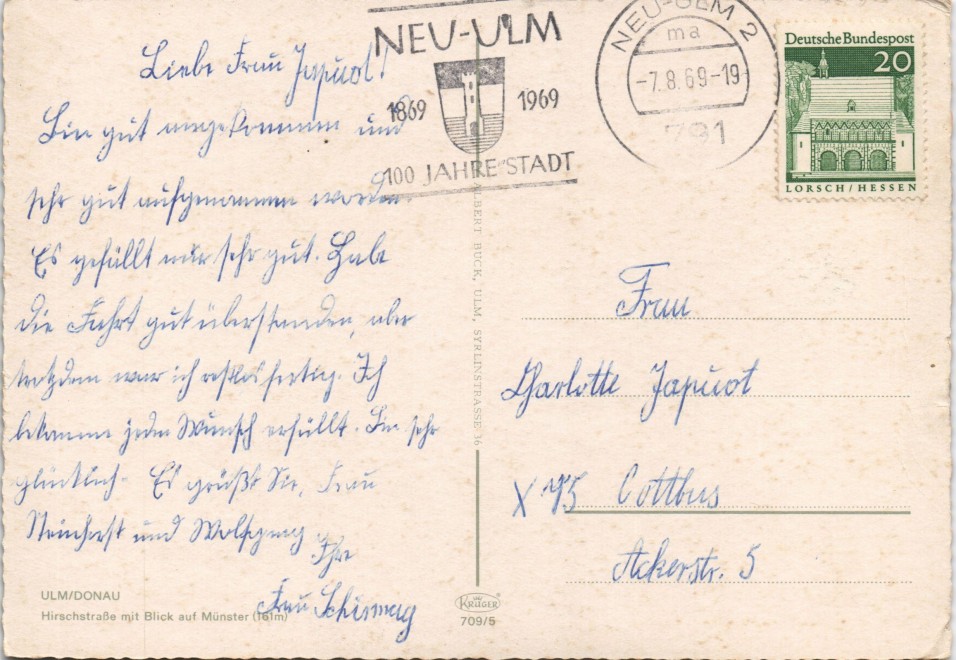 Liebe Frau Japuot!
Bin gut angekommen und
sehr gut aufgenommen worden.
Es gefällt mir sehr gut. Habe
die Fahrt gut überstanden, aber
trotzdem war ich restlos fertig. Ich
bekomme jeden Wunsch erfüllt. Bin sehr
glücklich. Es grüßt Sie, Frau
und Wolfgang
Ihre
Frau
ULM/DONAU
Hirschstraße mit Blick auf Münster (161m)
ALBERT BUCK, ULM, SYRLINSTRASSE 36
KRÜGER
709/5
NEU-ULM
1869 1969
100 JAHRE STADT
NEU-ULM 2
ma
-7.8.69-19
791
Deutsche Bundespost
20
LORSCH/HESSEN
Frau
Charlotte Japuot
X 75 Cottbus
Ackerstr. 5